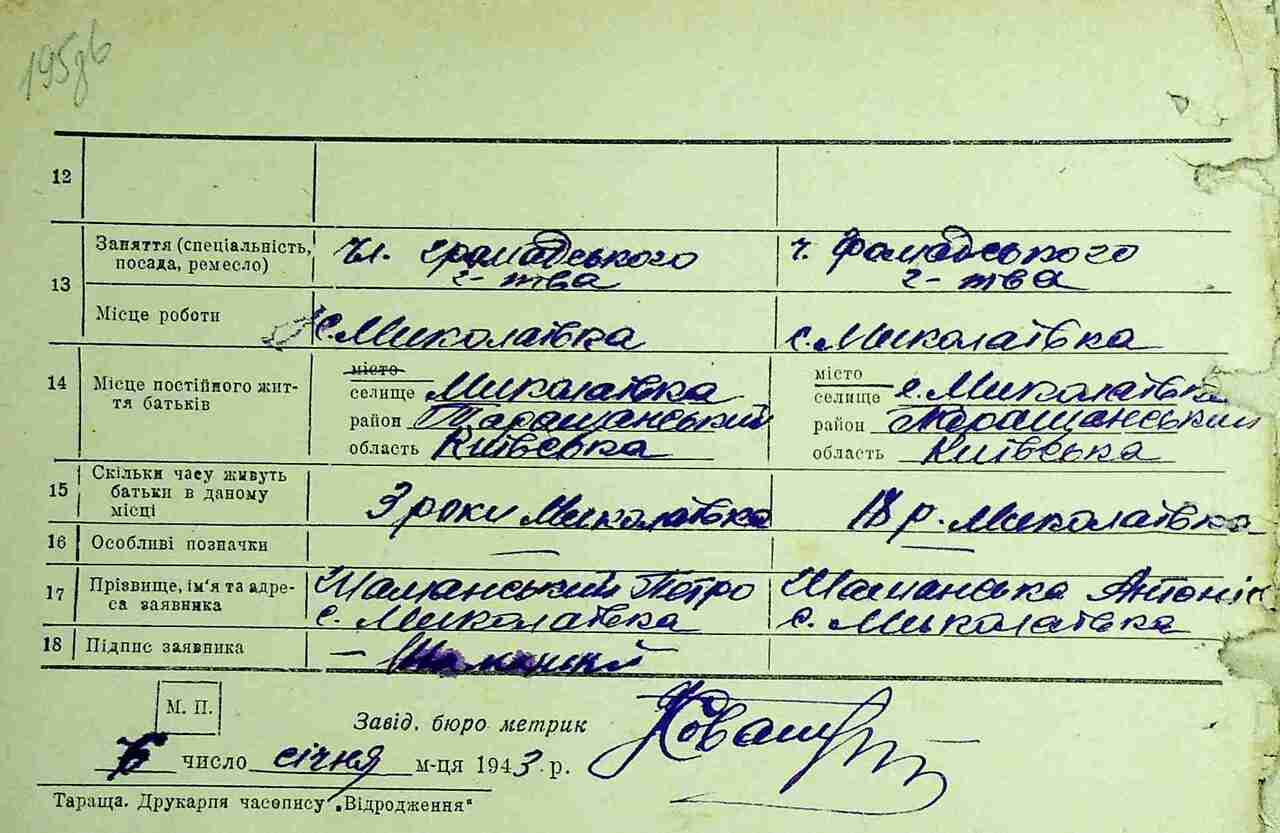 195зв
12
13 Заняття (спеціальність, посада, ремесло) Чл. громадського г-тва ч. громадського г-тва
Місце роботи с. Миколаївка с. Миколаївка
14 Місце постійного життя батьків
місто місто
селище Миколаївка селище с. Миколаївка
район Таращанський район Таращанський
область Київська область Київська
15 Скільки часу живуть батьки в даному місці 3 роки Миколаївка 18 р. Миколаївка
16 Особливі позначки — —
17 Прізвище, ім'я та адреса заявника Шаманський Петро Шаманська Антоні
с. Миколаївка с. Миколаївка
18 Підпис заявника —
М. П.
Завід. бюро метрик
6 число січня м-ця 1943 р.
Тараща. Друкарня часопису „Відродження"